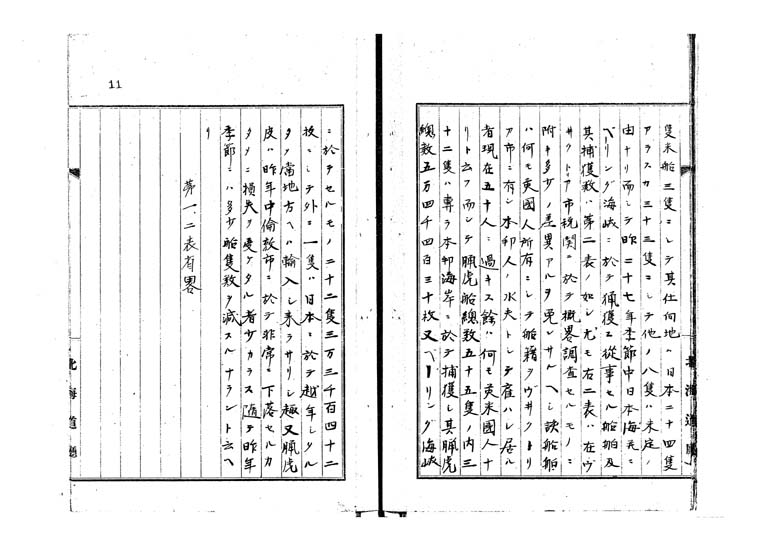 隻米船三隻ニシテ其仕向地ハ日本二十四隻
アラスカ三十三隻ニシテ他ノ八隻ハ未定ノ
由ナリ而シテ昨二十七年季節中日本海並ニ
ベーリング海峡ニ於テ捕獲ニ從事セル船舶及
其捕獲数ハ第二表ノ如シ尤モ右二表ハ在ヴ
ヰクトリア市税関ニ於テ概畧調査セルモノニ
附キ多少ノ差異アルヲ免レサルヘシ該船舶
ハ何モ英國人所有ニシテ船籍ヲヴヰクトリ
ア市ニ有シ本邦人ノ水夫トシテ雇ハレ居ル
者現在五十人ニ過キス餘ハ何モ英米國人ナ
リト云フ而シテ膃虎船総数五十五隻ノ内三
十二隻ハ専ラ本邦海岸ニ於テ捕獲シ其膃虎
総数五万四千四百三十枚又ベーリング海峡
ニ於テセルモノ二十二隻三万三千百四十二
枚ニシテ外ニ一隻ハ日本ニ於テ越年シタル
タメ當地方ヘハ輸入シ来ラサリシ趣又膃虎
皮ハ昨年中倫敦市ニ於テ非常ニ下落セルカ
タメニ損失ヲ受ケタル者少カラス随テ昨年
季節ニハ多少船隻数ヲ減スルナラント云ヘ
リ
第一、二表省畧
北海道廳
北海道廳
11